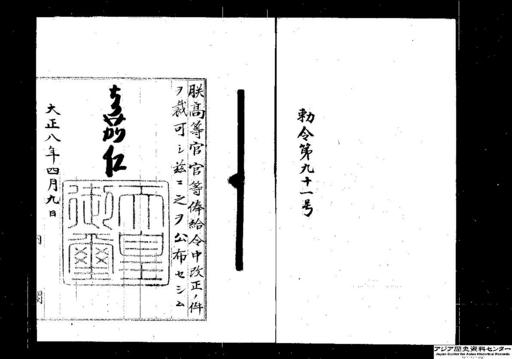 勅令第九十一号
朕高等官官等俸給令中改正ノ件
ヲ裁可シ茲ニ之ヲ公布セシム
嘉仁
天皇御璽
大正八年四月九日
アジア歴史資料センター
Japan Center for Asian Historical Records